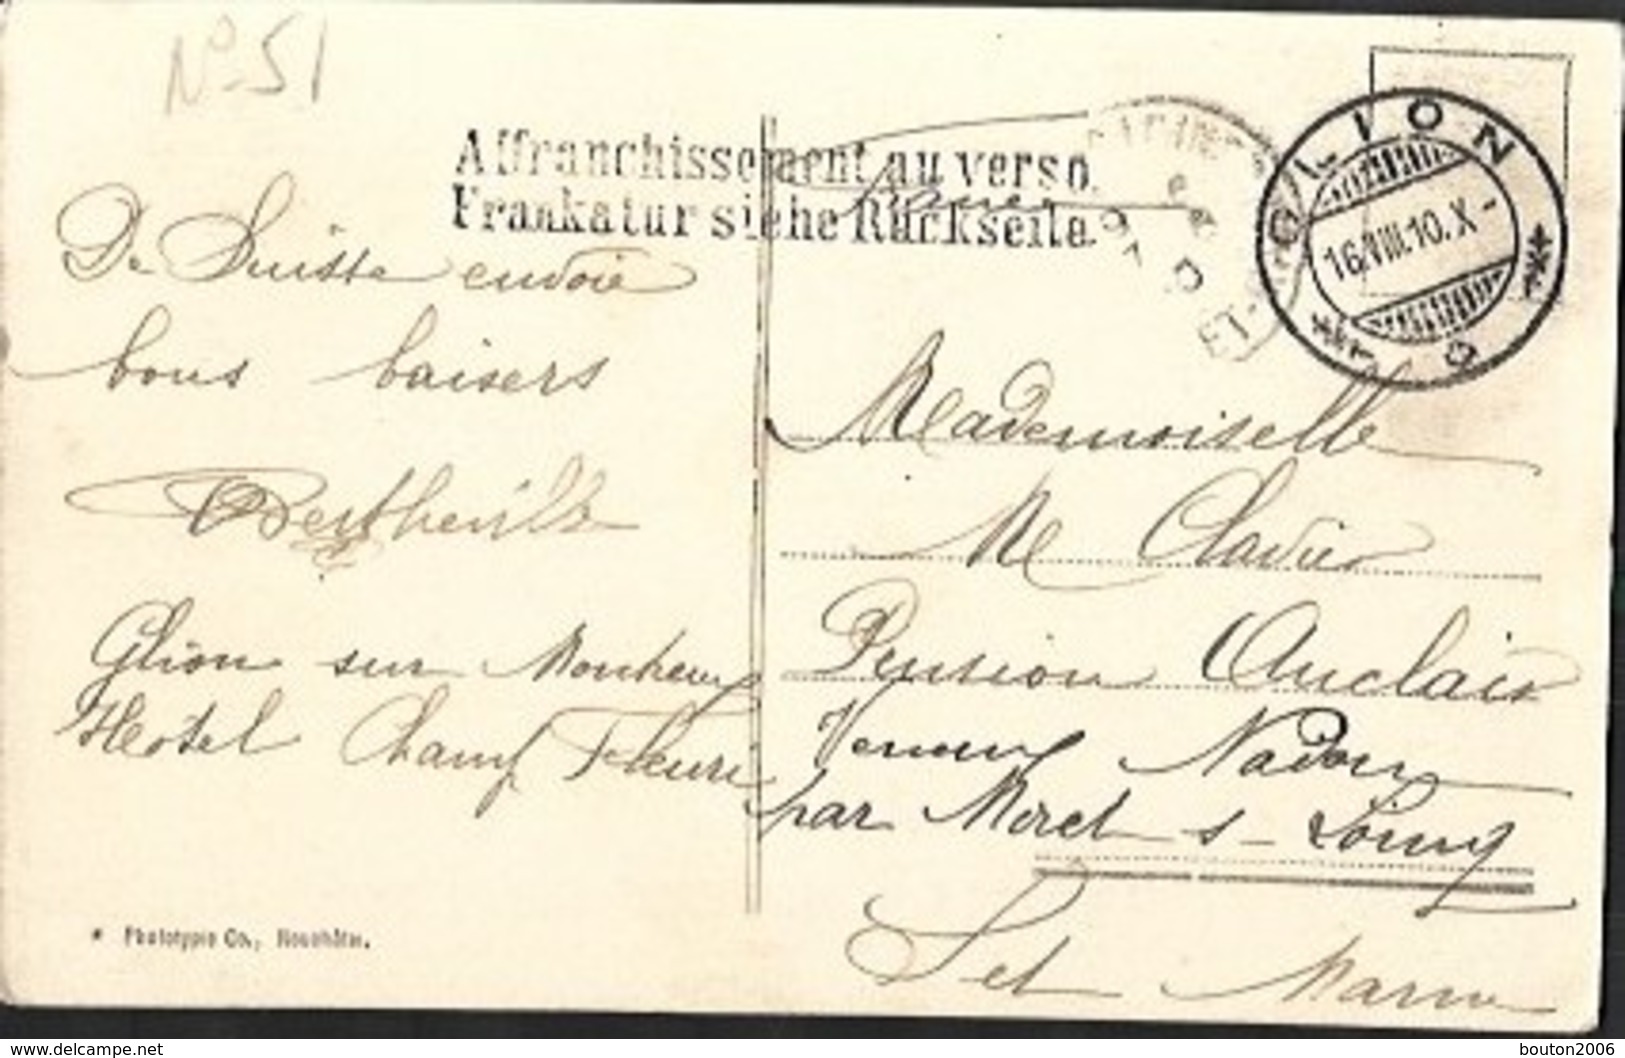 No 51
Affranchissement au verso.
Frankatur siehe Rückseite.
GLION
16.VIII.10.X-
De Suisse envoie
bons baisers
Glion sur Montreux
Hôtel Champ Fleuri
Mademoiselle
M Clavier
Pension Auclair
Veneux Nadon
par Moret s- Loing
Set Marne
* Phototypie Co., Neuchâtel.
www.delcampe.net
bouton2006